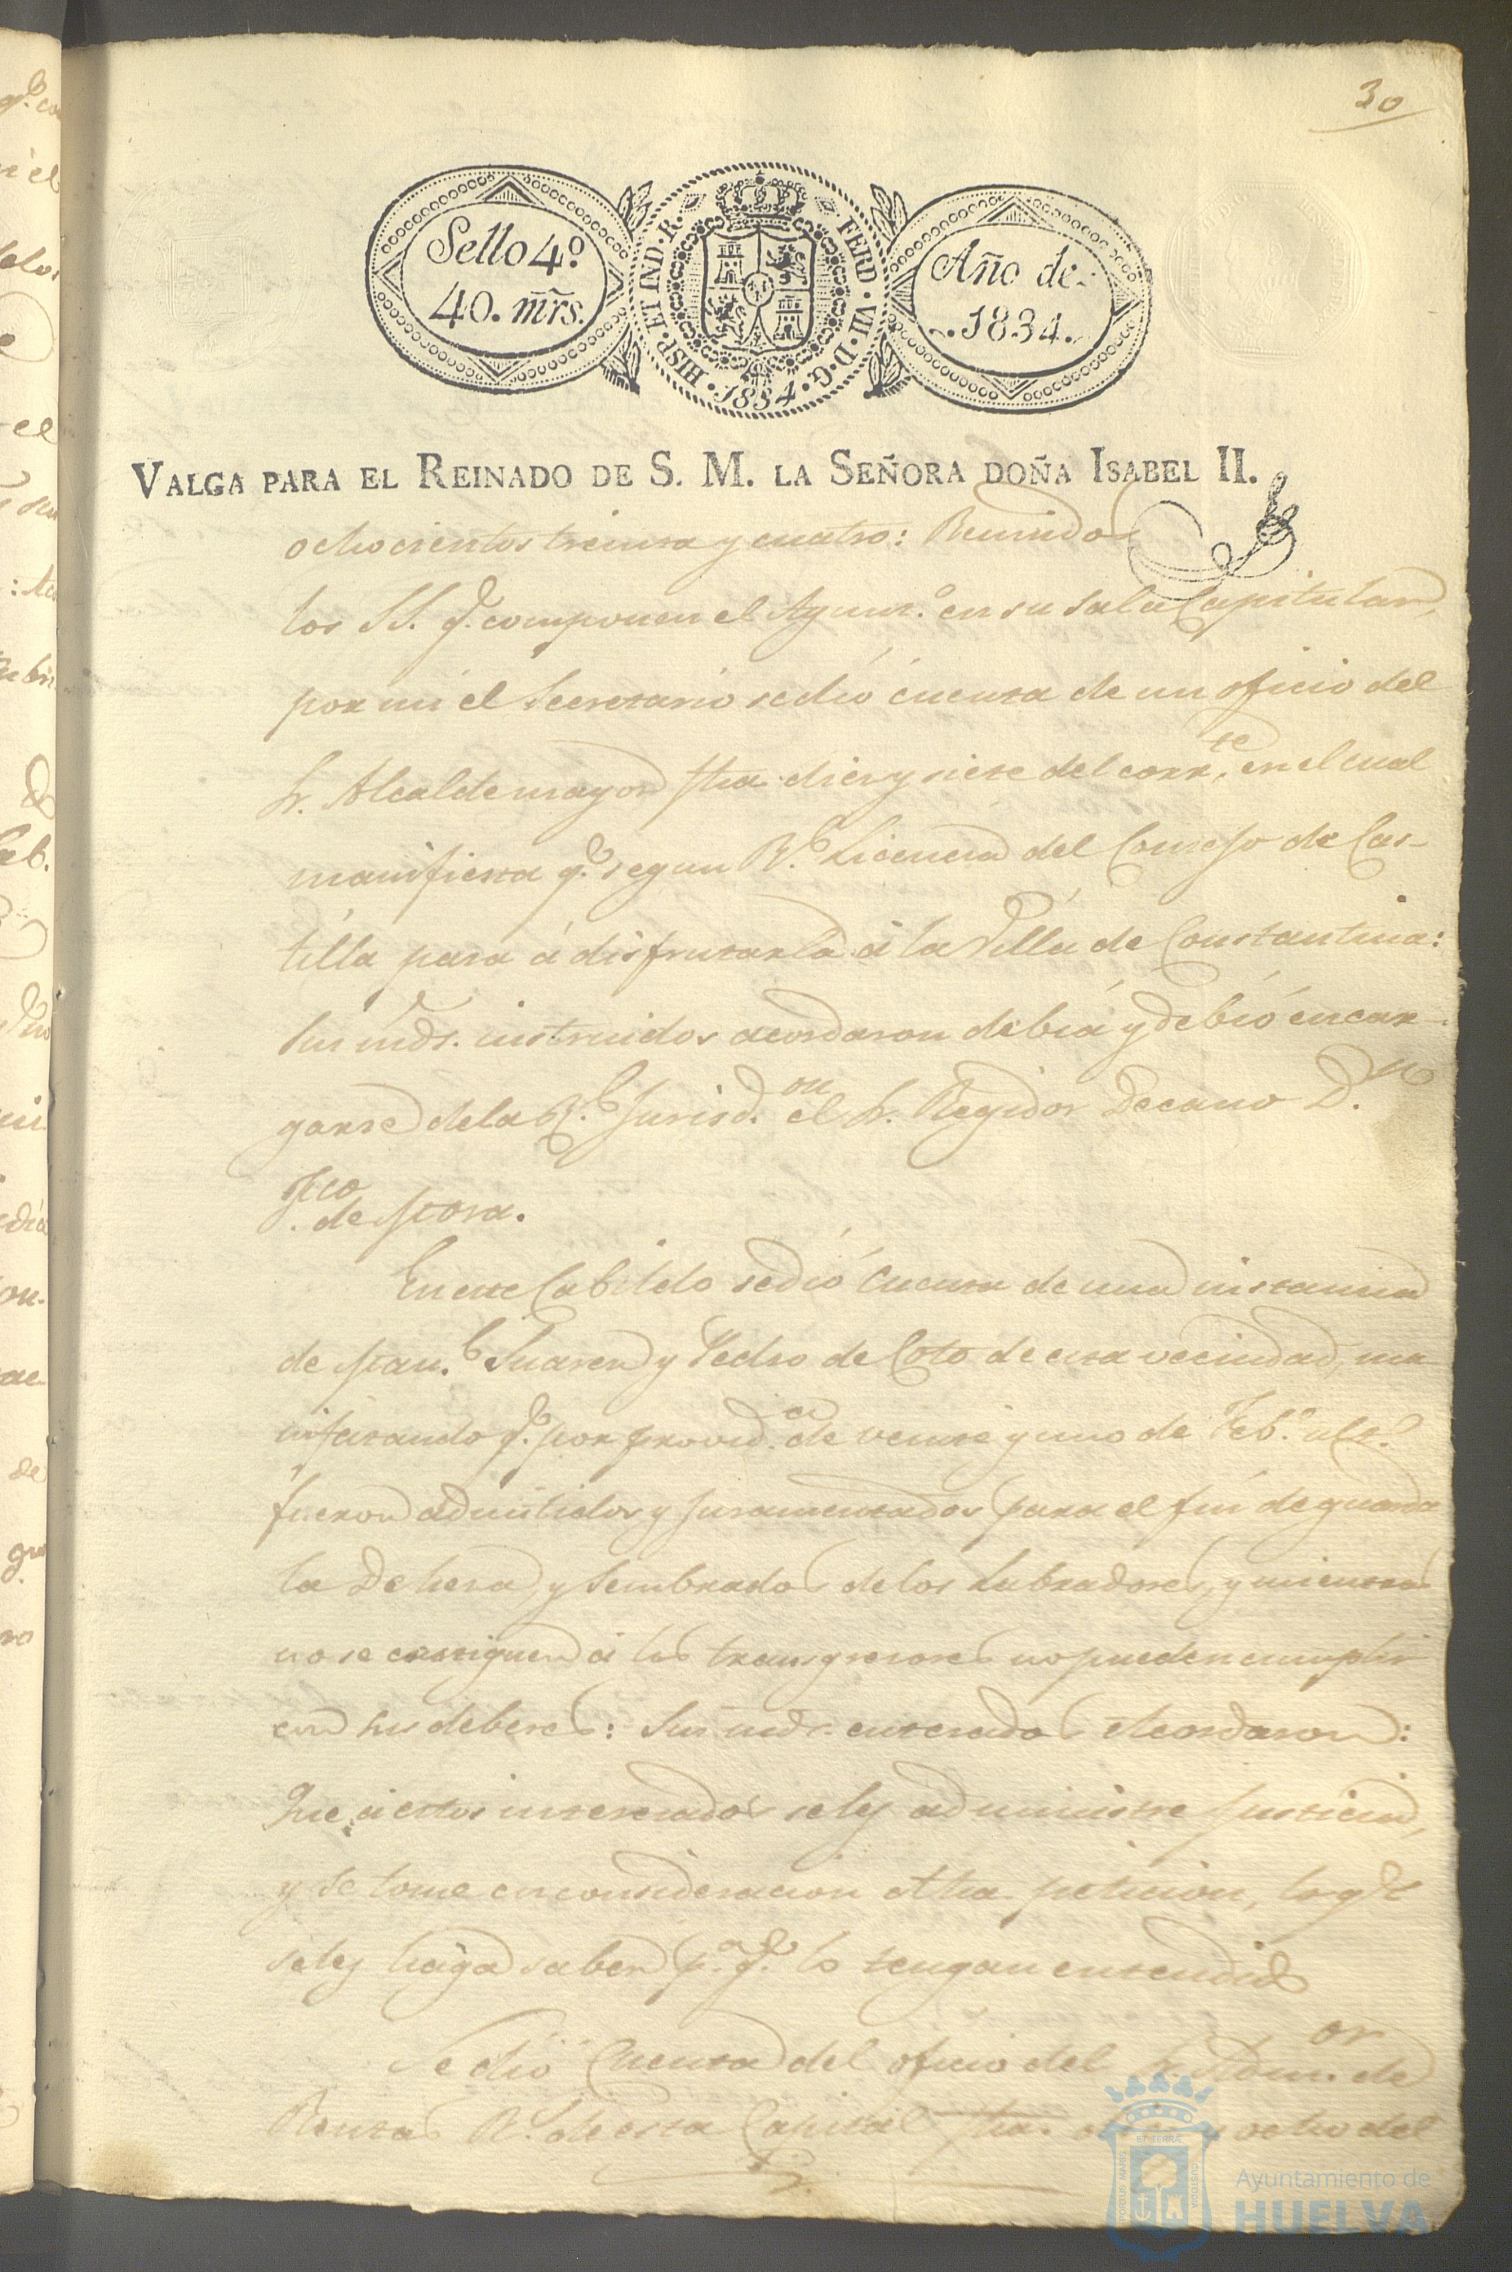 30
Sello 4º
40. mrs.
HISP. ET IND. R. FERD. VII. D. G. 1834.
Año de
1834.
VALGA PARA EL REINADO DE S. M. LA SEÑORA DOÑA ISABEL II.
ochocientos treinta y cuatro: Reunidos
los SS. q.e componen el Ayunt.º en su sala Capitular,
por mi el Secretario se dió cuenta de un oficio del
Sr. Alcalde mayor fha. diez y siete del corr.te, en el cual
manifiesta q.e segun R.l Licencia del Consejo de Cas-
tilla pasa á disfrutarla á la Villa de Constantina:
Sus mds. instruidos acordaron debia y debió encar-
garse de la R.l Jurisd.on el Sr. Regidor Decano D.n
Fco. de Mora.
En este Cabildo se dió cuenta de una instancia
de Man.l Suarez y Pedro de Coto de esta vecindad, ma-
nifestando q.e por provid.a de veinte y uno de Feb.º ult.º
fueron admitidos y juramentados para el fin de guardar
la Dehesa, y Sembrados de los Labradores, y mientras
no se castiguen á los transgresores no pueden cumplir
con sus deberes: Sus mds. enterados Acordaron:
Que á estos interesados se les administre justicia,
y se tome en consideracion dha. peticion, lo q.e
se les haga saber p.a q.e lo tengan entendido
Se dió Cuenta del oficio del Sr. Adm.or de
Rentas R.s de esta Capital fha. diez y ocho del
PORTUS MARIS ET TERRÆ CUSTODIA
Ayuntamiento de
HUELVA